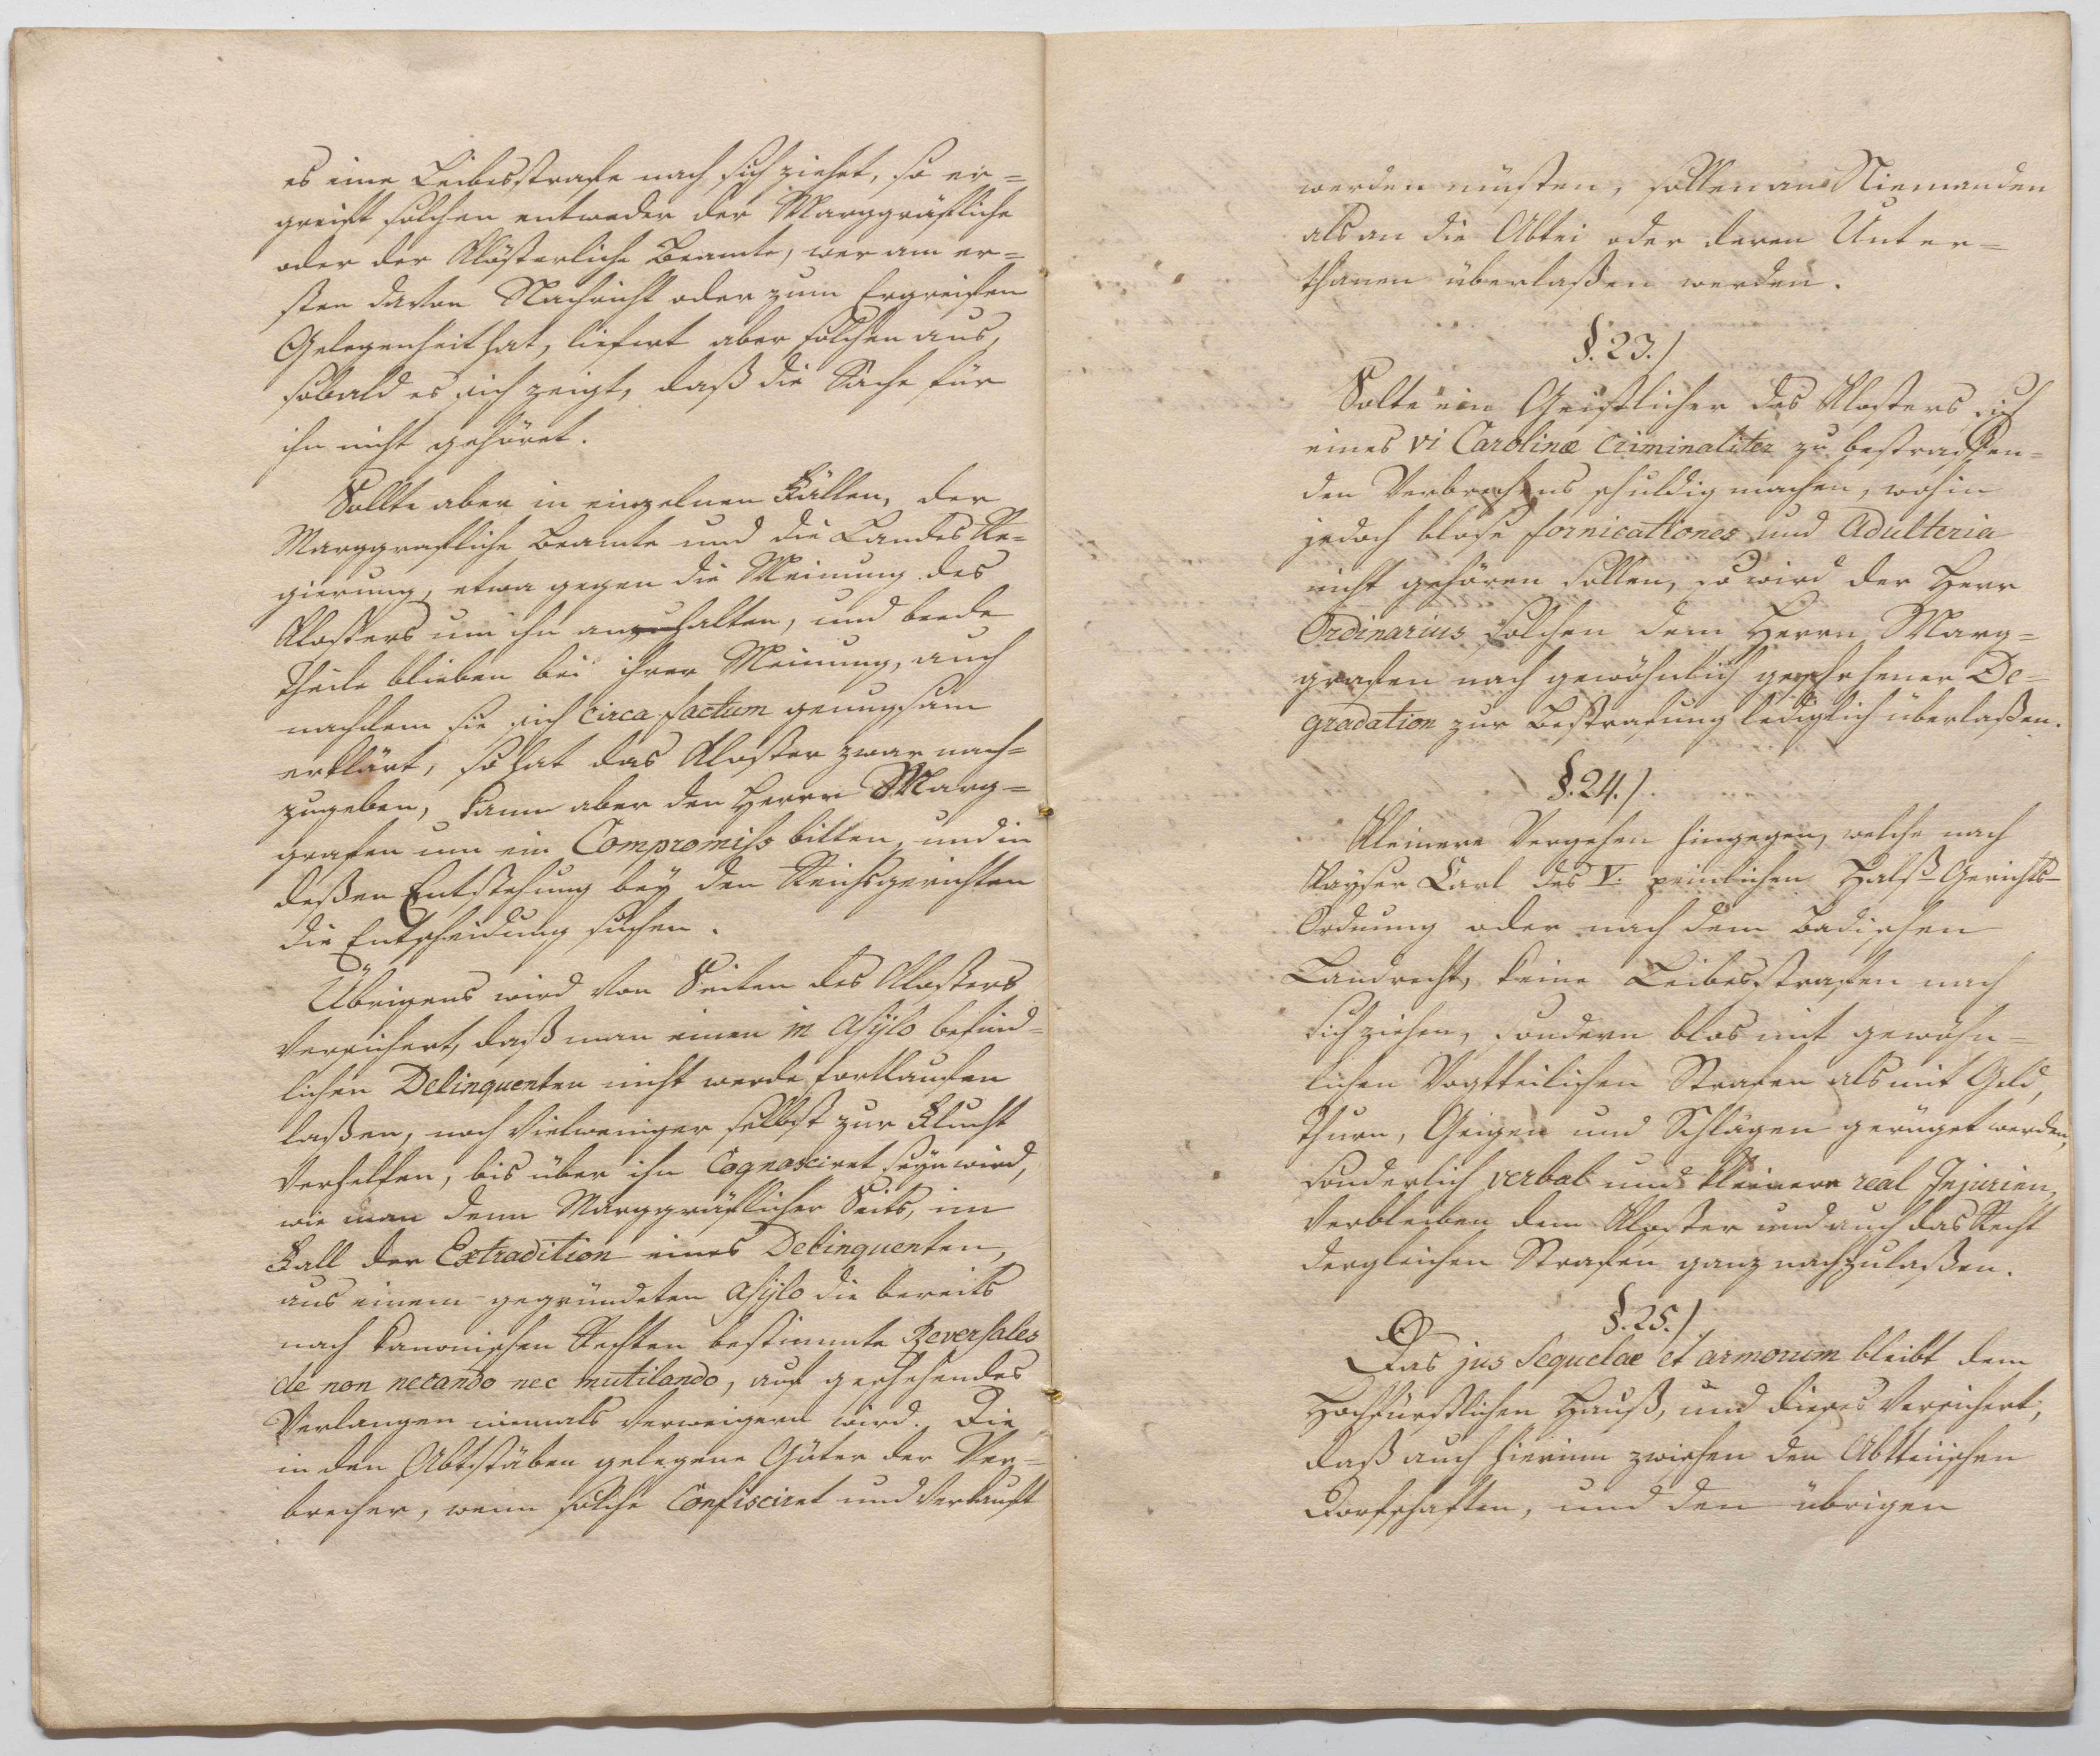 es eine Leibesstrafe nach sich ziehet, so er=
greift solchen entweder der Marggräfliche
oder der Klösterliche Beamte, wer am er=
sten davon Nachricht oder zum Ergreifen
Gelegenheit hat, liefert aber solchen aus,
sobald es sich zeigt, daß die Sache für
ihn nicht gehöret.
Sollte aber in einzelnen Fällen, der
Marggrafliche Beamte und die Landes Re=
gierung, etwa gegen die Meinung des
Klosters um ihn anhalten, und beede
Theile blieben bei ihrer Meinung, auch
nachdem sie sich circa factum genugsam
erklärt, so hat das Kloster zwar nach=
zugeben, kann aber den Herrn Marg=
grafen um ein Compromiss bitten, und in
deßen Entstehung bey den Reichsgerichten
die Entscheidung suchen.
Übrigens wird von Seiten des Klosters
versichert, daß man einen in Asÿlo befind=
lichen Delinquenten nicht werde fortlaufen
laßen, noch vielweniger selbst zur Flucht
verhelfen, bis über ihn Cognosciret seyn wird,
wie man denn Marggräflicher Seits, im
Fall der Extradition eines Delinquenten,
aus einem gegründeten Asÿlo die bereits
nach kanonischen Rechten bestimmte Reversales
de non necando nec mutilando, auf geschehendes
Verlangen niemals verweigern wird. Die
in den Abtsstäben gelegene Güter der Ver=
brecher, wenn solche Confisciret und verkauft
werden müsten, sollen an Niemanden
als an die Abtei oder deren Unter=
thanen überlaßen werden.
§. 23./
Solte ein Geistlicher des Klosters sich
eines vi Carolinæ criminaliter zu bestrafen=
den Verbrechens schuldig machen, wohin
jedoch blose fornicationes und Adulteria
nicht gehören sollen, so wird der Herr
Ordinarius solchen dem Herrn Marg=
grafen nach gewöhnlich geschehener De=
gradation zur Bestrafung lediglich überlaßen.
§. 24./
Kleinere Vergehen hingegen, welche nach
Kayser Carl des V. peinlichen Halß-Gerichts-
Ordnung oder nach dem Badischen
Landrecht, keine Leibesstrafen nach
sich ziehen, sondern blos mit gewöhn=
lichen Vogtteilichen Strafen als mit Geld,
Thurn, Geigen und Schlägen gerüget werden,
sonderlich verbal und kleinere real Injurien,
verbleiben dem Kloster und auch das Recht
dergleichen Strafen ganz nachzulaßen.
§. 25./
Das jus sequelae et armorum bleibt dem
Hochfürstlichen Hauß, und dieses versichert,
daß auch hierinn zwischen den Abtteiischen
Dorfschaften, und den übrigen